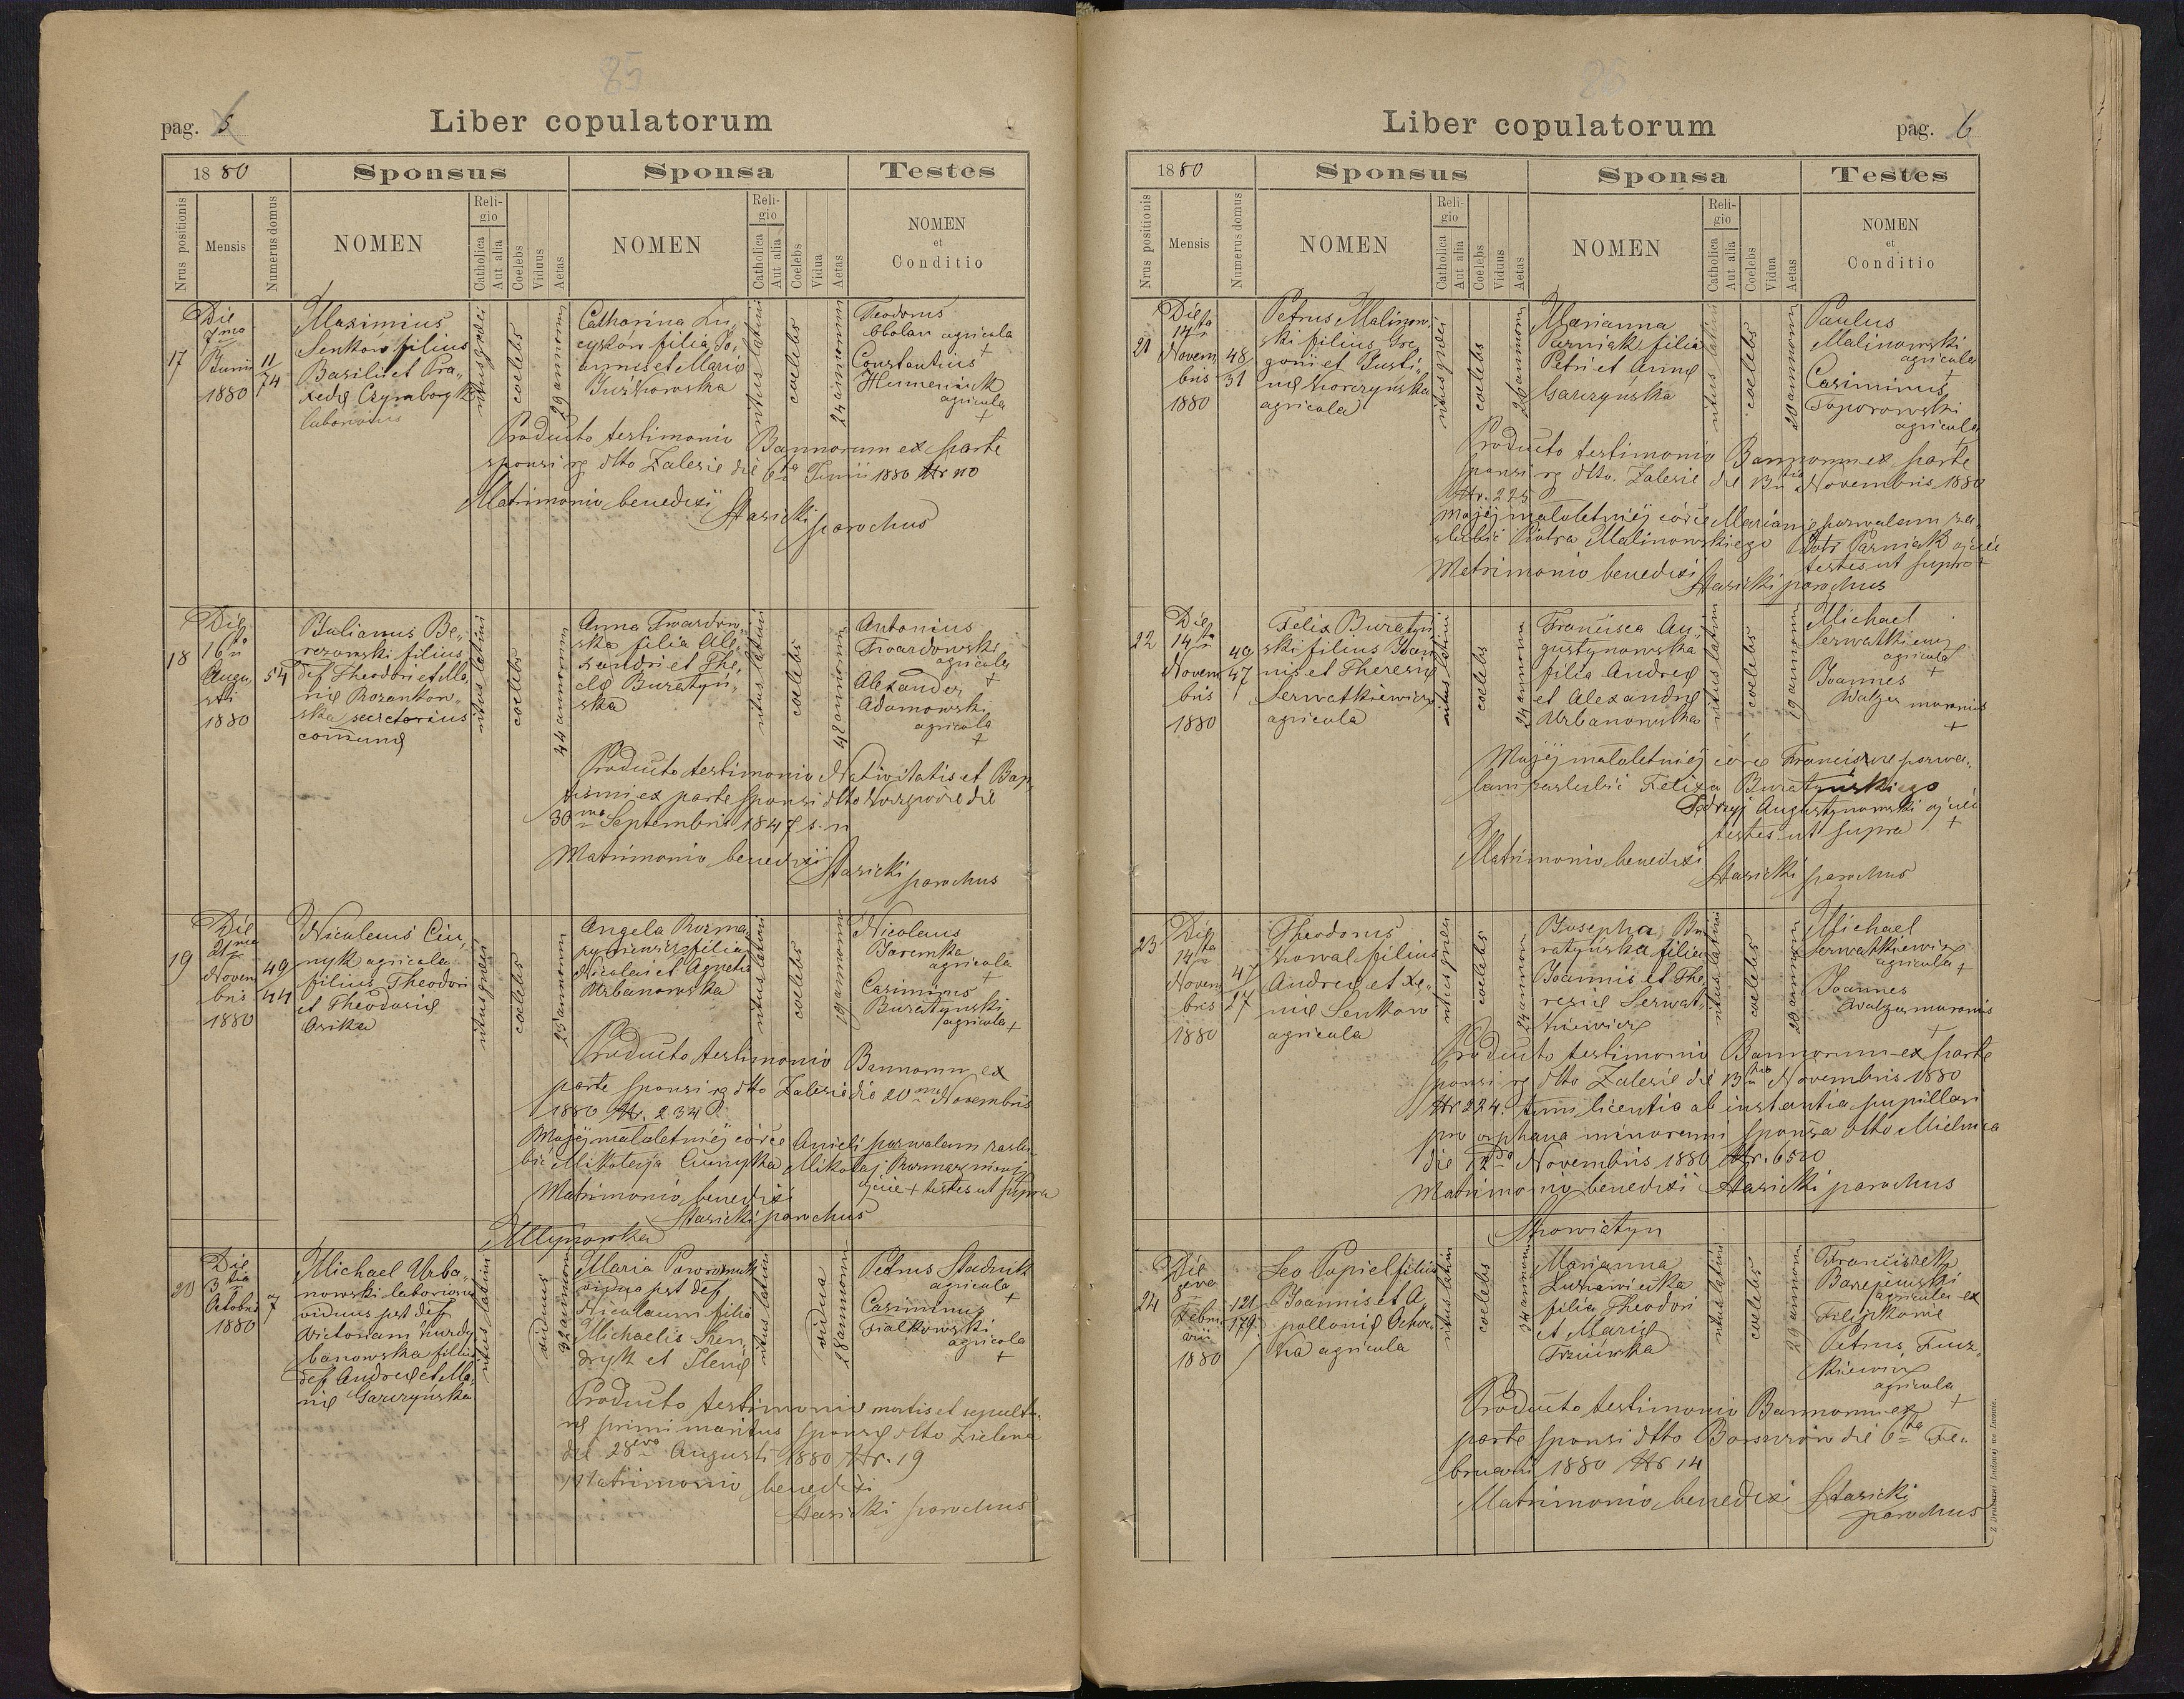 85
pag. 5
Liber copulatorum
18 80
Sponsus
Sponsa
Testes
Nrus positionis
Mensis
Numerus domus
NOMEN
Religio
Catholica
Aut alia
Coelebs
Viduus
Aetas
NOMEN
Religio
Catholica
Aut alia
Coelebs
Vidua
Aetas
NOMEN
et
Conditio
17
Die
7mo
Junii
1880
11
74
Maximius
Senkow filius
Basilii et Pra„
xedę
laboriosus
ritus graeci
coelebs
29 annorum
Catharina Lu„
cyków filia Jo„
annis et Marię
Juzkowska
ritus latini
coelebs
24 annorum
Teodorus
agricola
+
Constantius
Humeniuk
agricola
+
Producto testimonio Bannorum ex parte
sponsi rg dtto Zalesie die 6ta Junii 1880 Nr 110
Matrimonio benedixi
Stasicki parochus
18
Die
16ta
Augu„
sti
1880
54
Julianus Be„
rezowski filius
def Theodori et Ma„
rię Rozankow„
ska secretarius
communę
ritus latini
coelebs
44 annorum
Anna Twardow„
ska filia Ale„
xandri et The„
clę Buratyń„
ska
ritus latini
coelebs
42 annorum
Antonius
Twardowski
agricola
+
Alexander
Adamowski
agricola
+
Producto testimonio Nativitatis et Bap„
tismi ex parte sponsi dtto die
30ma Septembris 1847 s. n
Matrimonio benedixi
Stasicki parochus
19
Die
21ma
Novem
bris
1880
49
44
Nicolaus Ciu„
nyk agricola
filius Theodori
et Theodorię
Osika
ritus graeci
coelebs
25 annorum
Angela Rozma„
rynowicz filia
Nicolai et Agnetis
Urbanowska
ritus latini
coelebs
19 annorum
Nicolaus
Jaremka
agricola
+
Casimirus
Buratynski
agricola +
Producto testimonio Bannorum ex
parte sponsi rg dtto Zalesie die 20ma Novembris
1880 Nr. 234
Mojéj małoletniéj córce Anieli pozwalam zaślu„
bić Mikołaja Ciunyka Mikołaj
ojciec + testes ut supra
Matrimonio benedixi
Stasicki parochus
Młynówka
20
Die
3tia
Octobris
1880
7
Michael Urba„
nowski laboriosus
viduus pst def
Victoriam Hurdy
banowska filius
def Andreę et Ma„
rię Garczyńska
ritus latini
viduus
32 annorum
Maria Poworoznik
vidua pst def
Nicolaum filia
Michaelis Hen„
dryk et Helenę
ritus latini
vidua
28 annorum
Petrus Stadnik
agricola
+
Casimirus
Fialkowski
agricola
+
Producto testimonio mortis et sepultu„
rę primi maritus sponsę dtto Zielena
die 28va Augusti 1880 Nr. 19
Matrimonio benedixi
Stasicki parochus
86
Liber copulatorum
pag. 6
18 80
Sponsus
Sponsa
Testes
Nrus positionis
Mensis
Numerus domus
NOMEN
Religio
Catholica
Aut alia
Coelebs
Viduus
Aetas
NOMEN
Religio
Catholica
Aut alia
Coelebs
Vidua
Aetas
NOMEN
et
Conditio
21
Die
14ta
Novem
bris
1880
48
31
Petrus Malinow„
ski filius Gre„
gorii et Justi„
nę Skorczyńska
agricola
ritus graeci
coelebs
26 annorum
Marianna
Parniak filia
Petri et Annę
Garczyńska
ritus latini
coelebs
20 annorum
Paulus
Malinowski
agricola
+
Casimirus
Toporowski
agricola
+
Producto testimonio Bannorum ex parte
sponsi rg dtto. Zalesie die 13tia Novembris 1880
Nr. 225
Mojéj małoletniéj córce Mariannie pozwalam za„
ślubić Piotra Malinowskiego Piotr Parniak ojciec
testes ut supra +
Matrimonio benedixi
Stasicki parochus
22
Die
14ta
Novem
bris
1880
49
47
Felix Buratyń
ski filius Joan
nis et Theresię
Serwatkiewicz
agricola
ritus latini
coelebs
24 annorum
Francisca Au„
gustynowska
filia Andreę
et Alexandrę
Urbanowska
ritus latini
coelebs
19 annorum
Michael
Serwatkiewicz
agricola
+
Joannes
Walzer murarius
+
Mojéj małoletniéj córce Franciszce pozwa„
lam zaślubić Felixa Buratyńskiego
Jędrzyj Augustynowski ojciec
testes ut supra +
Matrimonio benedixi
Stasicki parochus
23
Die
14ta
Novem
bris
1880
47
27
Theodorus
Kowal filius
Andreę et Xe„
nię Senkow
agricola
ritus graeci
coelebs
24 annorum
Josepha Bu
ratyńska filia
Joannis et The„
resię Serwat„
kiewicz
ritus latini
coelebs
20 annorum
Michael
Serwatkiewicz
agricola +
Joannes
Walzer murarius
+
Producto testimonio Bannorum ex parte
sponsi rg dtto Zalesie die 13tia Novembris 1880
Nr 224. tum licentia ab instantia pupillari
pro orphana minorenni sponsa dtto Mielnica
die 12da Novembris 1880 Nr. 6520
Matrimonio benedixi Stasicki parochus
Skowiatyn
24
Die
8va
Febru„
arii
1880
121
179
Leo Popiel filius
Joannis et A„
pollonię Ochoc„
ka agricola
ritus latini
coelebs
34 annorum
Marianna
filia Theodori
et Marię
Trzcińska
ritus latini
coelebs
29 annorum
Franciszek
agricola ex
Filipkowie
Petrus Fucz„
kiewicz
agricola
+
Producto testimonio Bannorum ex
parte sponsi dtto Borszczów die 6ta Fe„
bruarii 1880 Nr 14
Matrimonio benedixi Stasicki
parochus
Z Drukarni Ludowej we Lwowie.